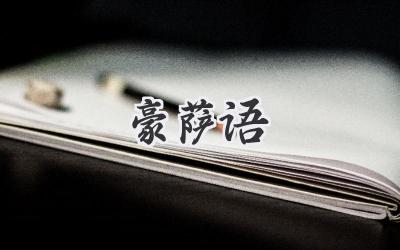 豪萨语